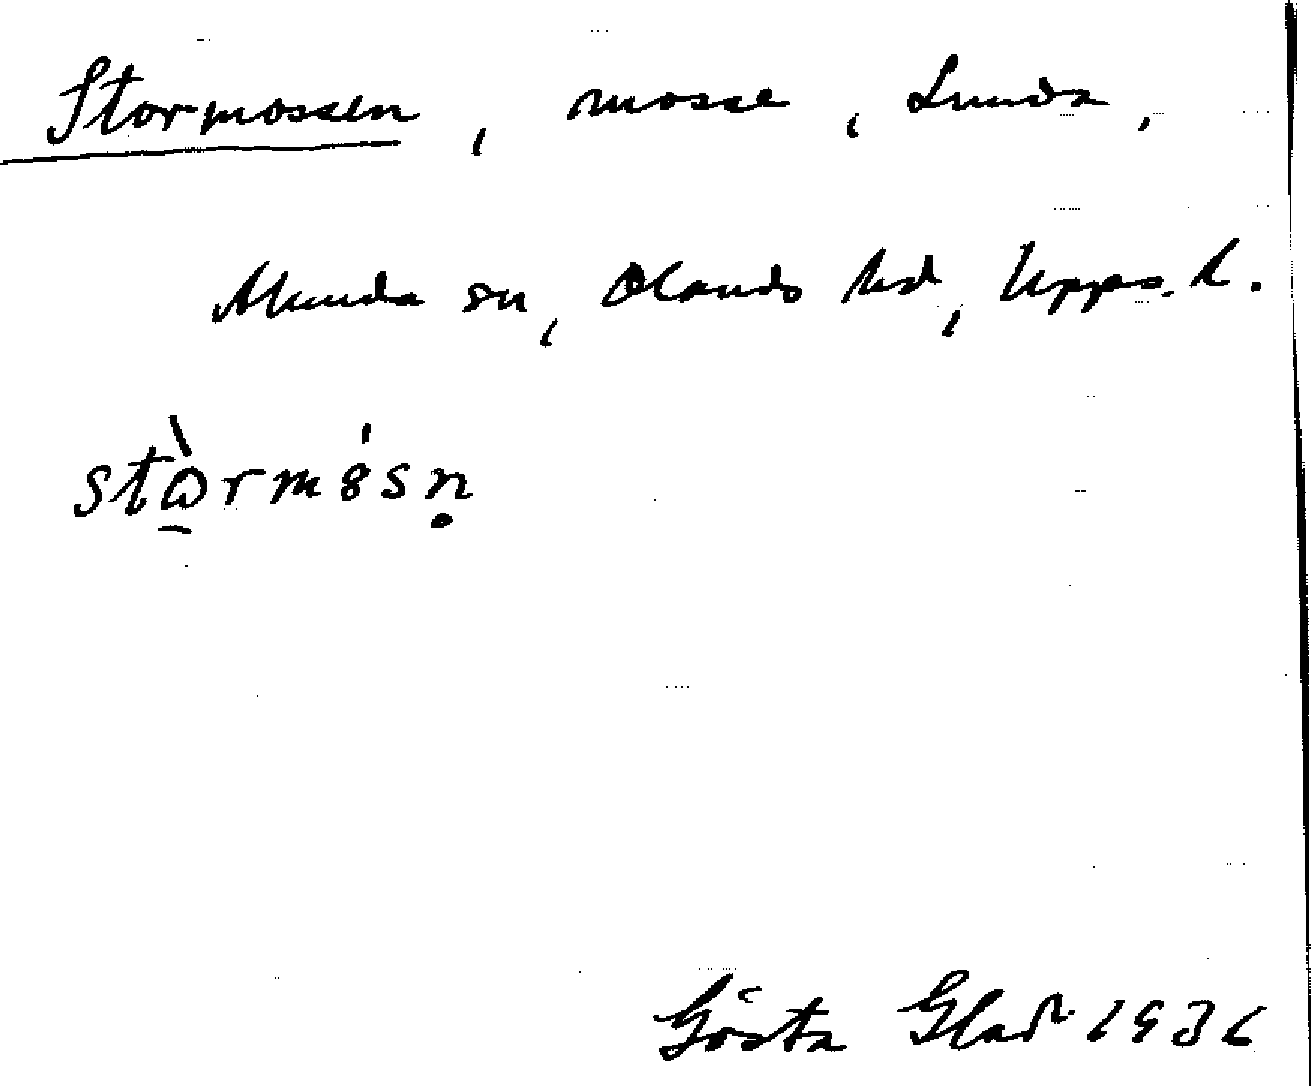 Stormossen, mosse, Lunda,
Alunda sn, Olands hd, Upps. l.
stὼ̱rmó̤sṇ
Gösta Glad 1936